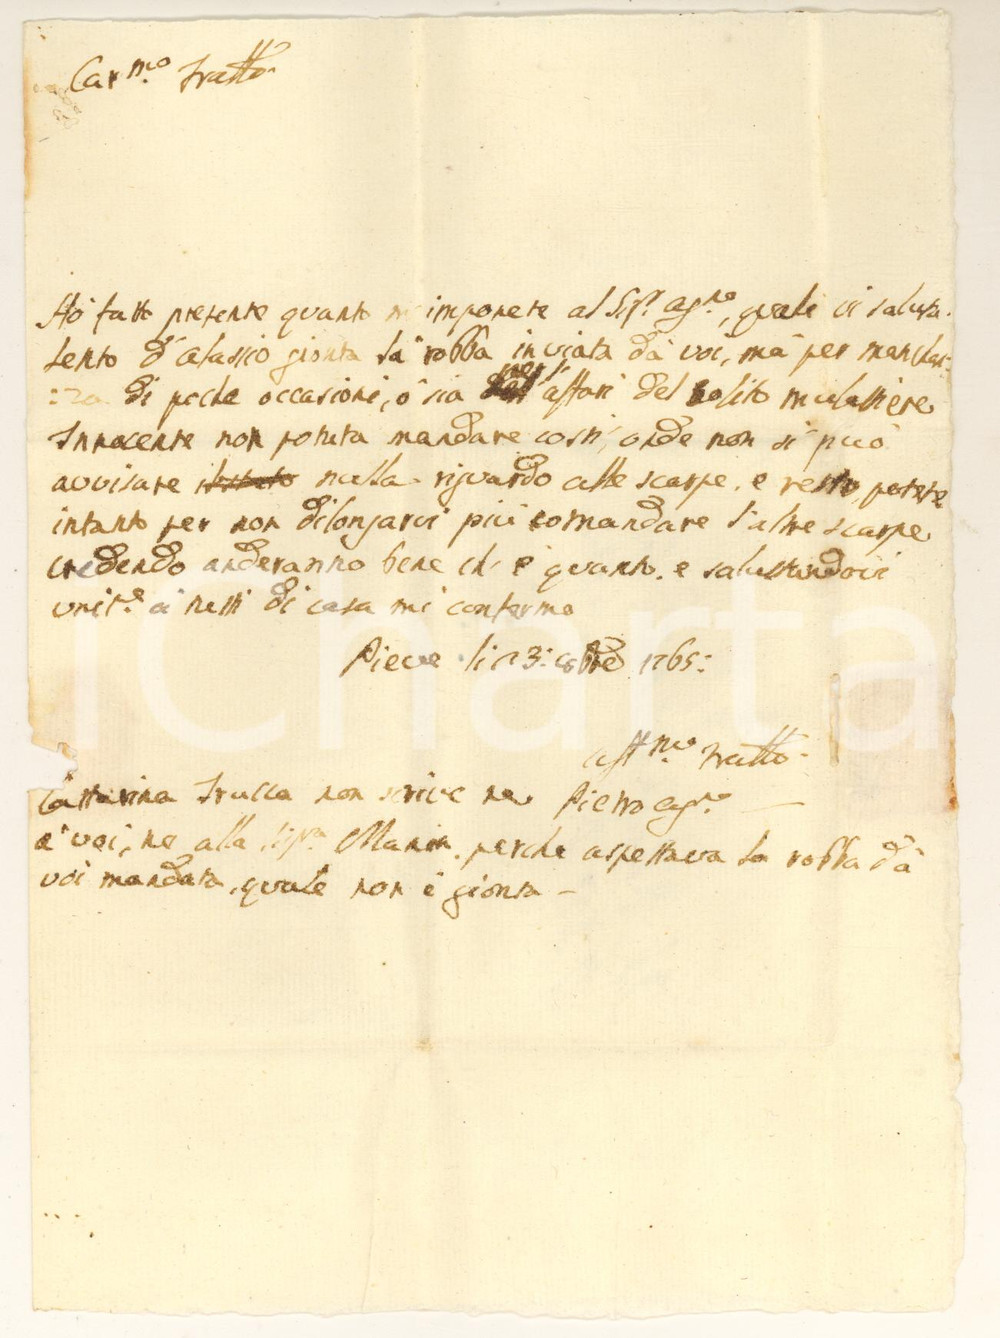 Car.mo Fratto.
Hò fatto presente quanto m'imponete al Sig.r Agn.o, quale vi saluta.
Sento d'Alassio gionta la robba inviata dà voi, mà per manchan:
:za di poche occasioni, ò sia affari del solito mulattiere
Innocente non potuta mandare costì, onde non si può
avvisare nulla riguardo alle scarpe, e resto, potete
intanto per non dilongarvi più comandare l'altre scarpe
credendo anderanno bene ch'è quanto. e salutandovi
unit.e à tutti di casa mi confermo
Pieve li 23: 8bre 1765:
aff.mo Fratto.
Cattarina Trucca non scrive ne Pietro Agn.o
à voi, ne alla Sig.ra Maria, perche aspettava la robba dà
voi mandata, quale non è gionta –
iCharta